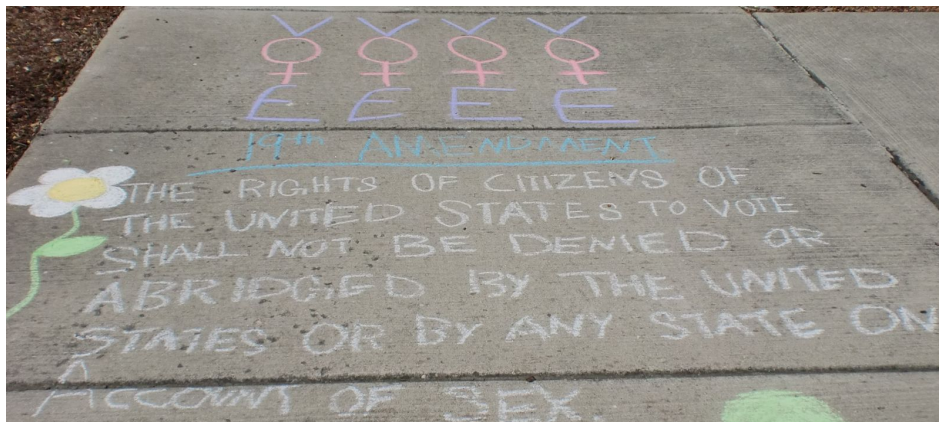 V V V V
♀ ♀ ♀ ♀
E E E E
19th AMENDMENT
THE RIGHTS OF CITIZENS OF
THE UNITED STATES TO VOTE
SHALL NOT BE DENIED OR
ABRIDGED BY THE UNITED
STATES OR BY ANY STATE ON
ACCOUNT OF SEX.